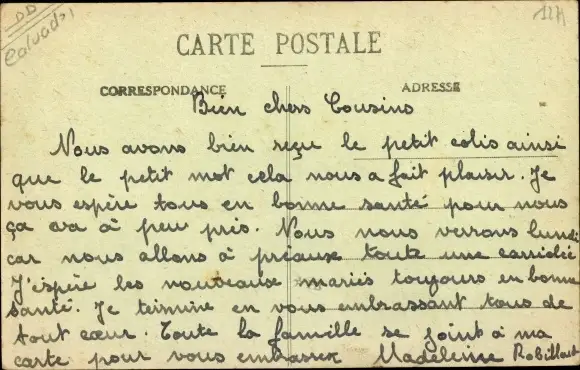 DD
Calvados
127
CARTE POSTALE
CORRESPONDANCE
ADRESSE
Bien chers Cousins
Nous avons bien reçu le petit colis ainsi
que le petit mot cela nous a fait plaisir. Je
vous espère tous en bonne santé pour nous
ça va à peu près. Nous nous verrons lundi
car nous allons à priaux toute une carriolée
J'espère les nouveaux mariés toujours en bonne
santé. Je termine en vous embrassant tous de
tout cœur. Toute la famille se joint à ma
carte pour vous embrasser Madeleine Robillard